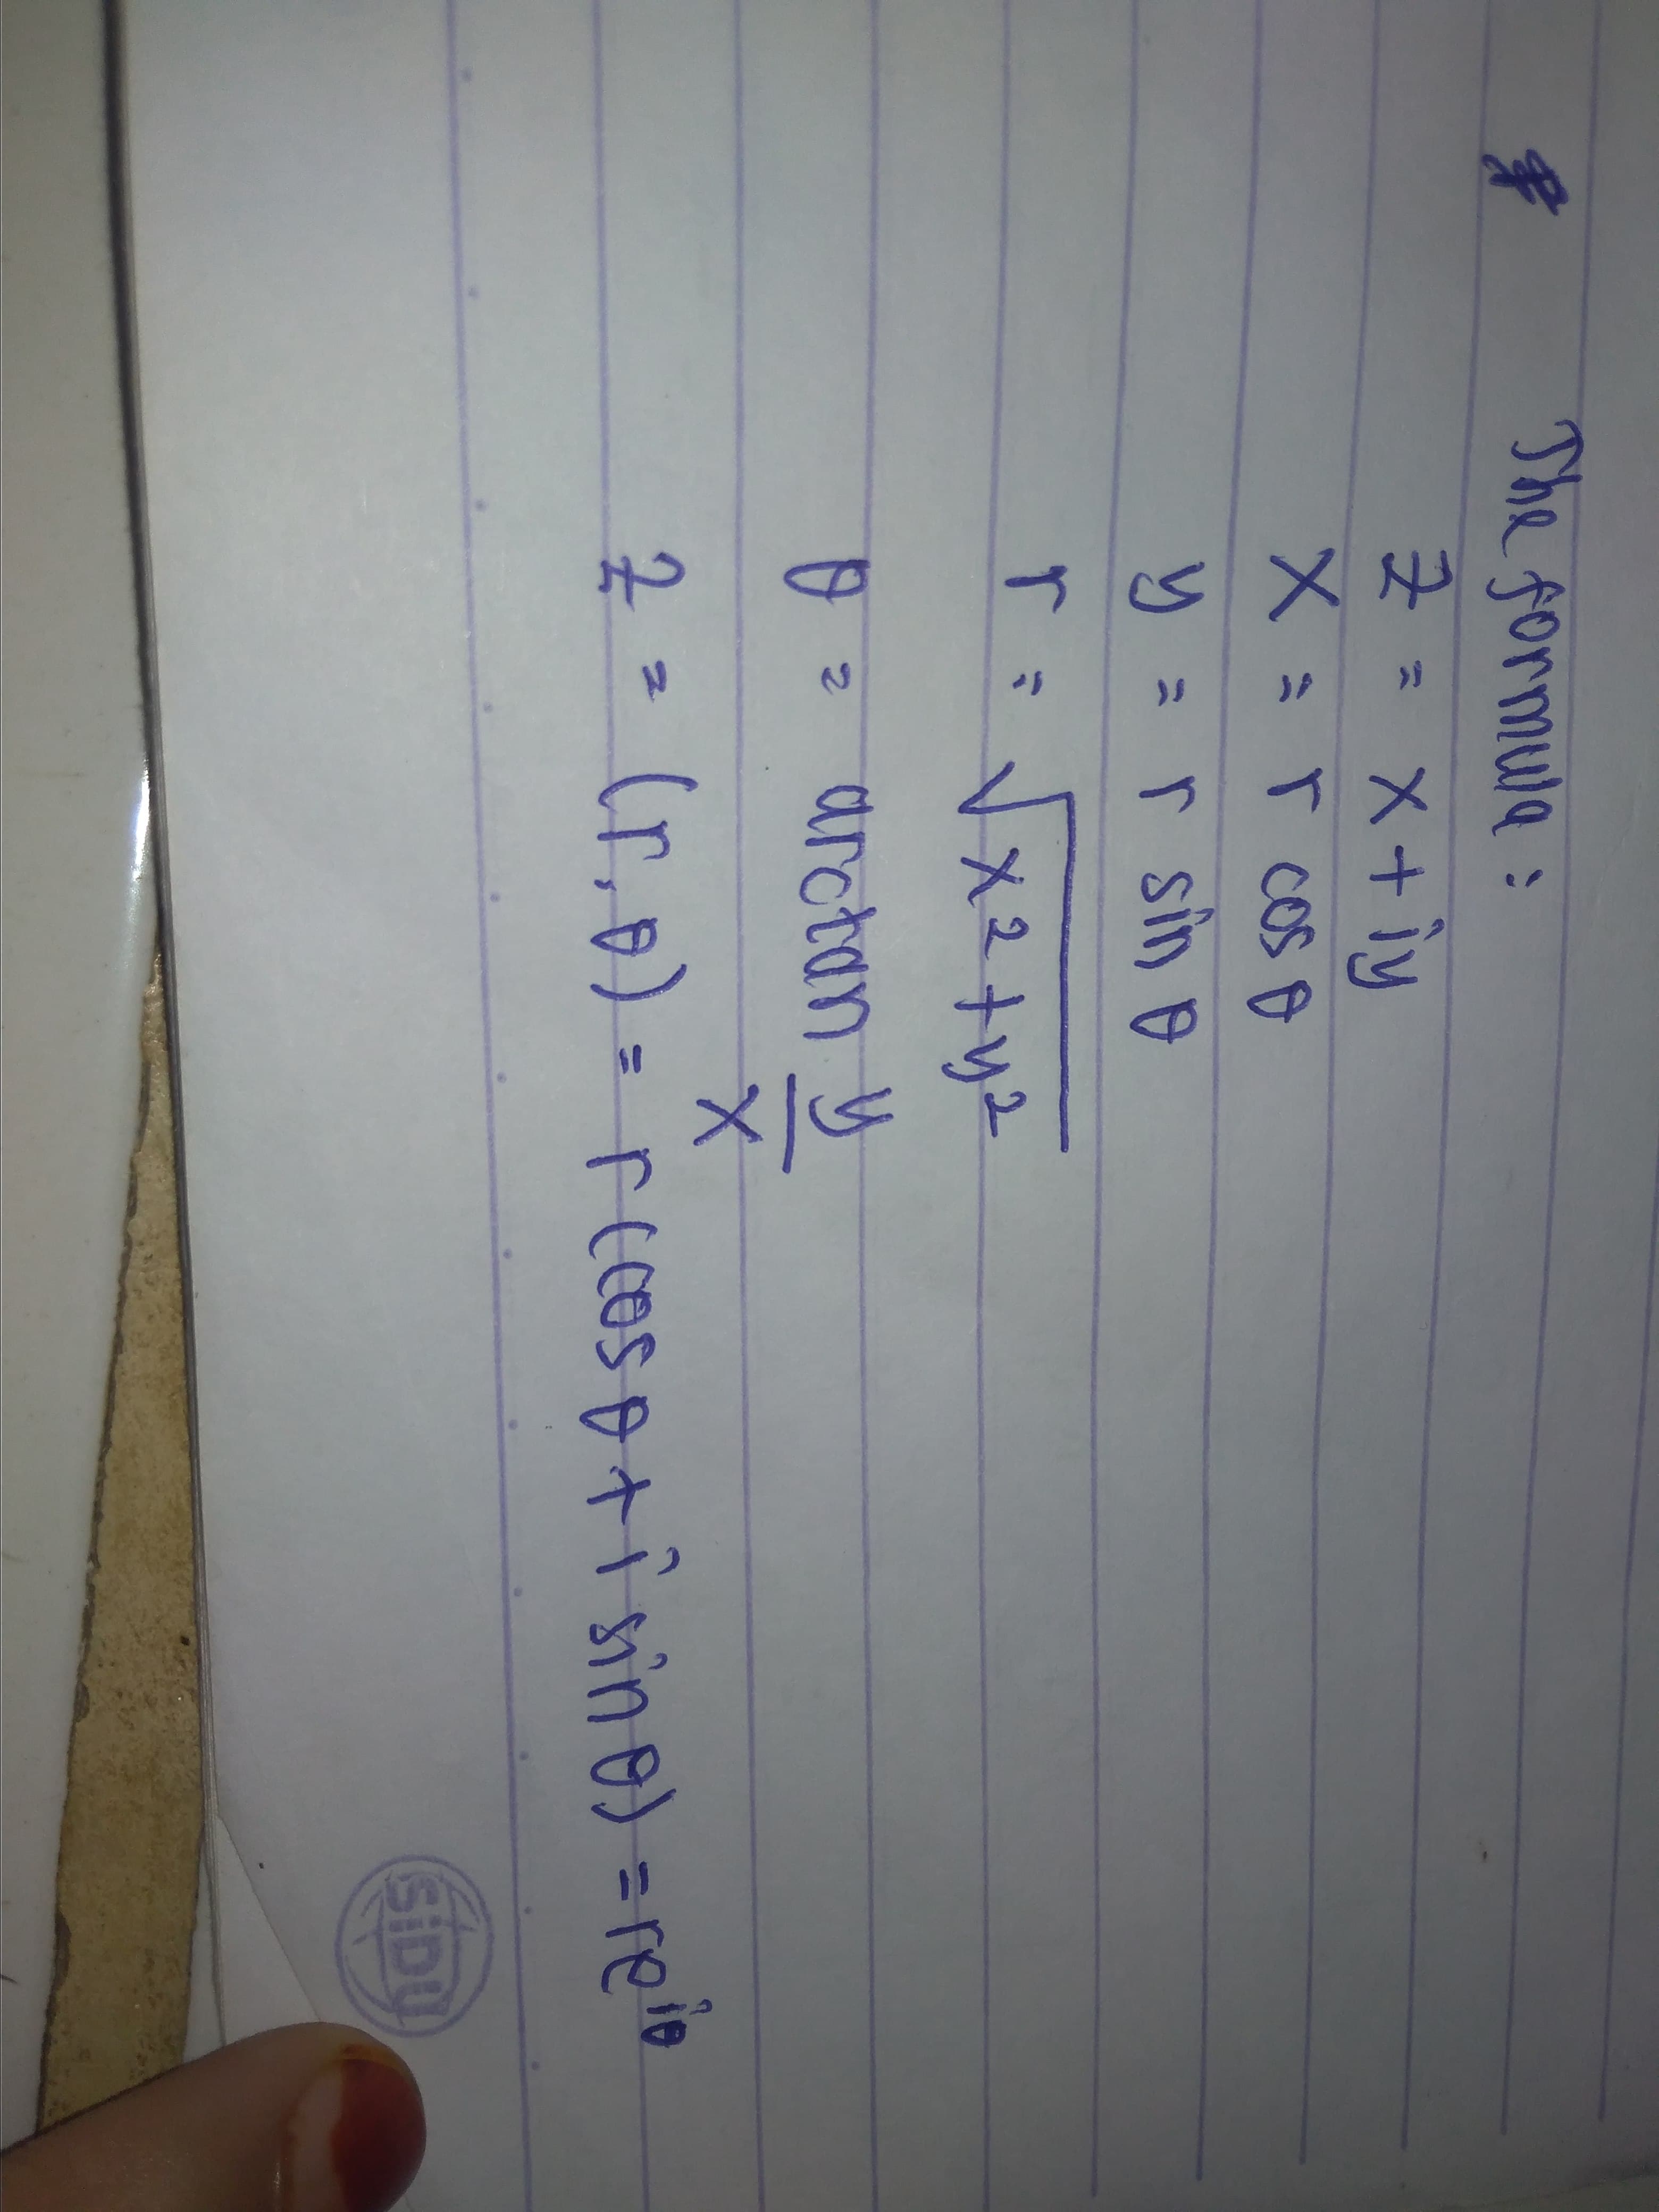 The formula :
z = x + iy
x = r cos θ
y = r sin θ
r = √x² + y²
θ = arctan y/x
z = (r, θ) = r (cos θ + i sin θ) = re^iθ
SiDU